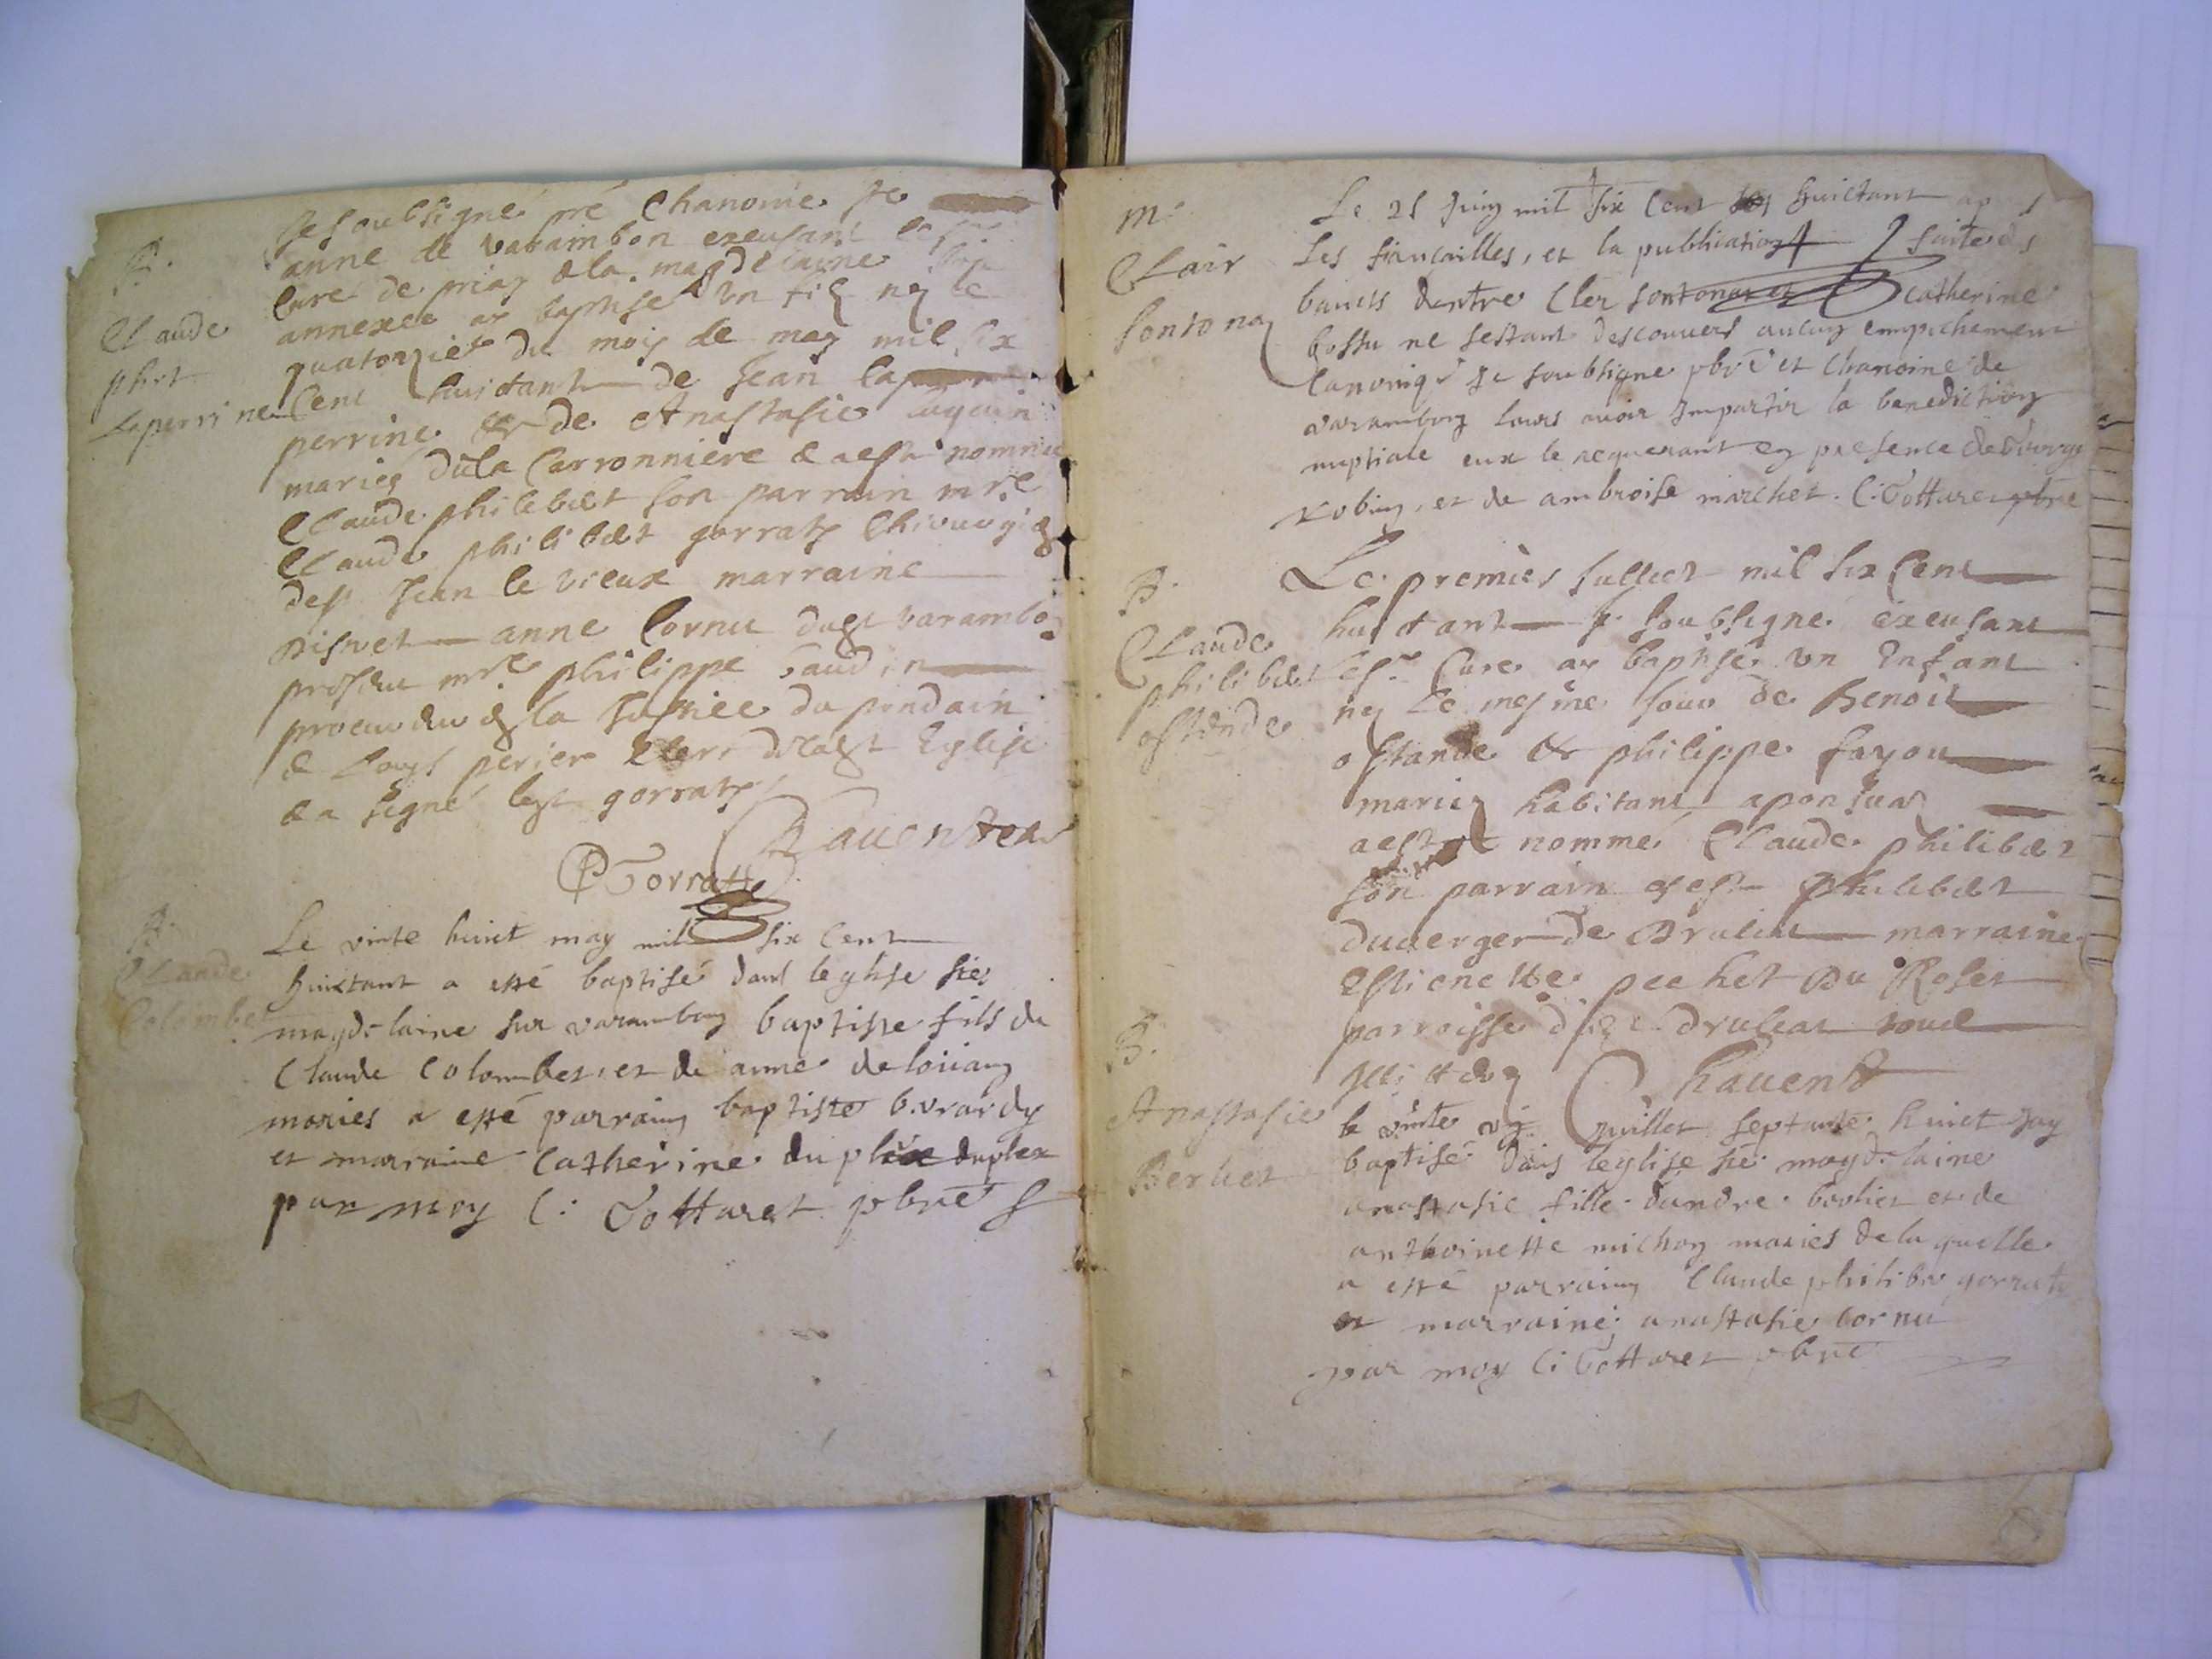 B.
Claude
phrt
Laperrine
Jesoubsigné pre Chanoine Ste
anne de varambon exeusant
Curé de priay & la magdelaine
annexee ay baptisé un fiz ney le
quatorzieme du mois de may mil six
Cent huictant de Jean la
perrine & de Anastasie
mariés dela Carronniere & aesté nommé
Claude philebert son parrain mre
Claude philibert gorraty Chirurgien
dest Jean le vieux marraine
anne Cornu dugt varambon
mre philippe Gaudin
procureur la Justice du pondain
& Louys perier Clerc Eglise
& a signé legt gorraty
Ravent
CP Gorraty
B.
Claude
Colombet
Le vinte huict may mil six Cent
huictant a esté baptisé dans leglise ste
magdelaine sur varambon baptiste fils de
Claude Colombet, et de anne de
mariés a esté parrain baptiste
et marraine Catherine duplex
par moy C: Gottaret pbre
M.
Clair
Fontonay
Le 25 Juing mil six Cent huictant
Les fiançailles, et la publication faite des
bancts dentre Cler Catherine
bossu ne sestant descouvert aucun empechement
Canonique Je soubsigne pbre et Chanoine de
varambon leurs avoir Impartir la benediction
nuptiale eux le requerant en presence de
robin, et de ambroise marchet. C: Gottaret pbre
B.
Claude
philibert
ostande
Le premier Juillet mil six Cent
huictant Je soubsigné exeusant
Cure ay baptisé un Enfant
ney Le mesme Jour de Benoit
ostande & philippe fayou
mariez habitant aponsuas
aesté nommé Claude philibert
son parrain est philebert
duverger de Druliat marraine
Estienette pechet Du Roset
parroisse dudt druliat
Illiteré Ravent
B.
Anastasie
Berliet
le vinte Juillet septante huict Jay
baptisé dans leglise ste magdelaine
anastasie fille dandre berliet et de
anthoinette michon mariés de laquelle
a esté parrain Claude philibert gorraty
et marraine anastasie Cornu
par moy C: Gottaret pbre